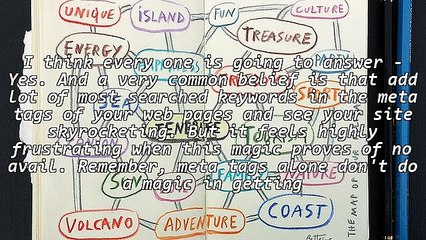 UNIQUE
ISLAND
FUN
CULTURE
TREASURE
ENERGY
I think every one is going to answer -
Yes. And a very common belief is that add
lot of most searched keywords in the meta
tags of your web pages and see your site
skyrocketing. But it feels highly
frustrating when this magic proves of no
avail. Remember, meta tags alone don't do
magic in getting
PARTY
SPORT
SEA
SUN
NATURE
VOLCANO
ADVENTURE
COAST
THE MAP OF